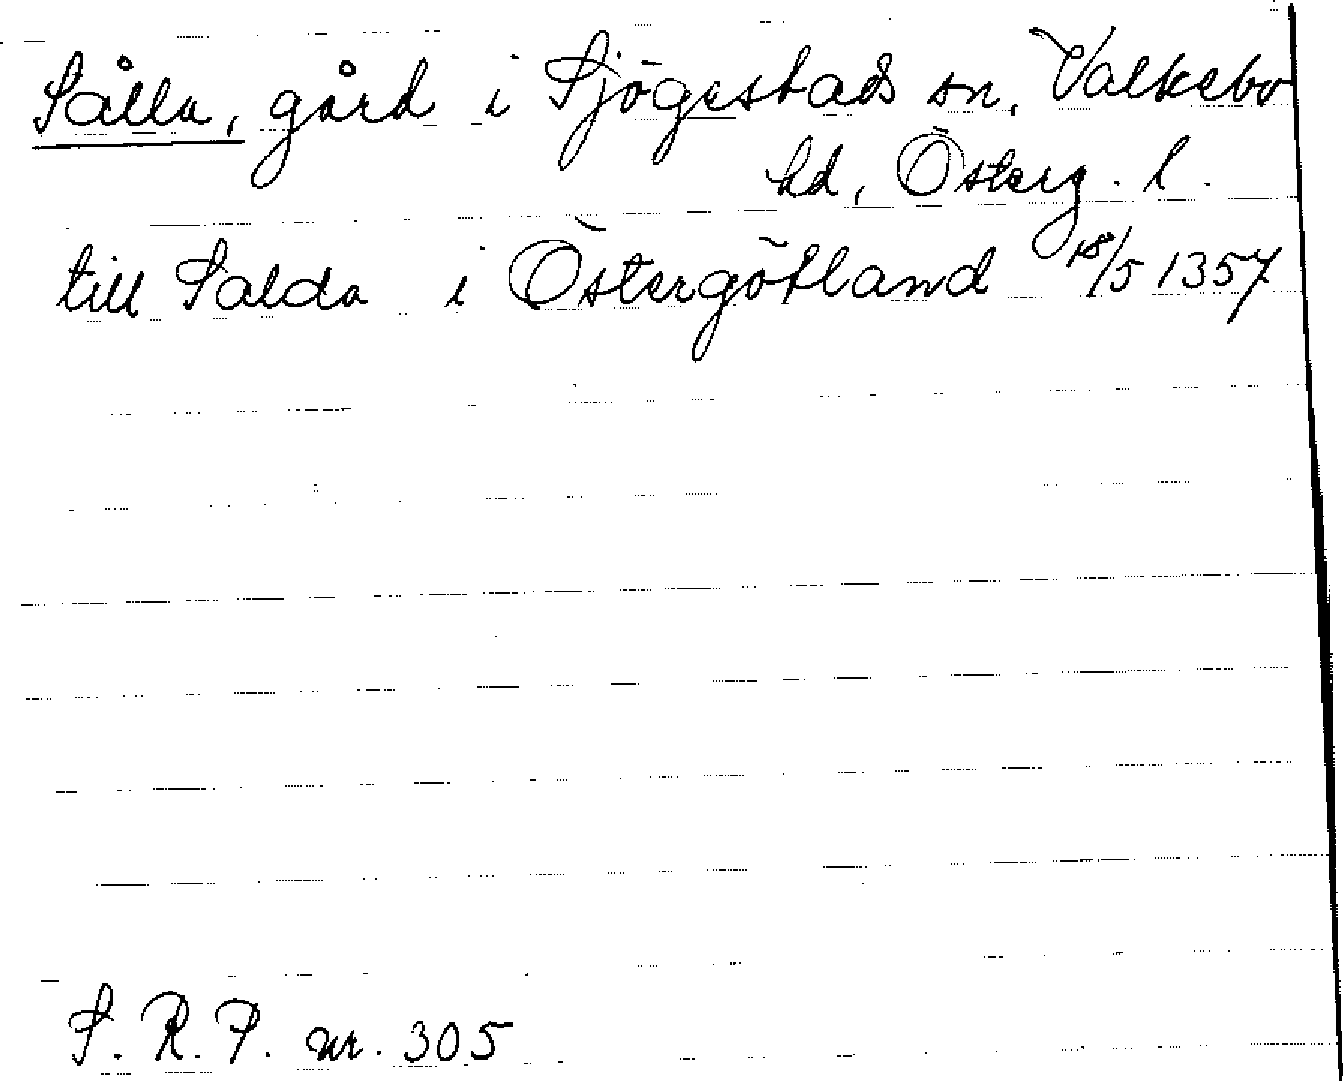 Sålla, gård i Sjögestads sn, Valkebo
hd, Österg. l.
till Salda i Östergötland 18/5 1357
S. R. P. nr. 305